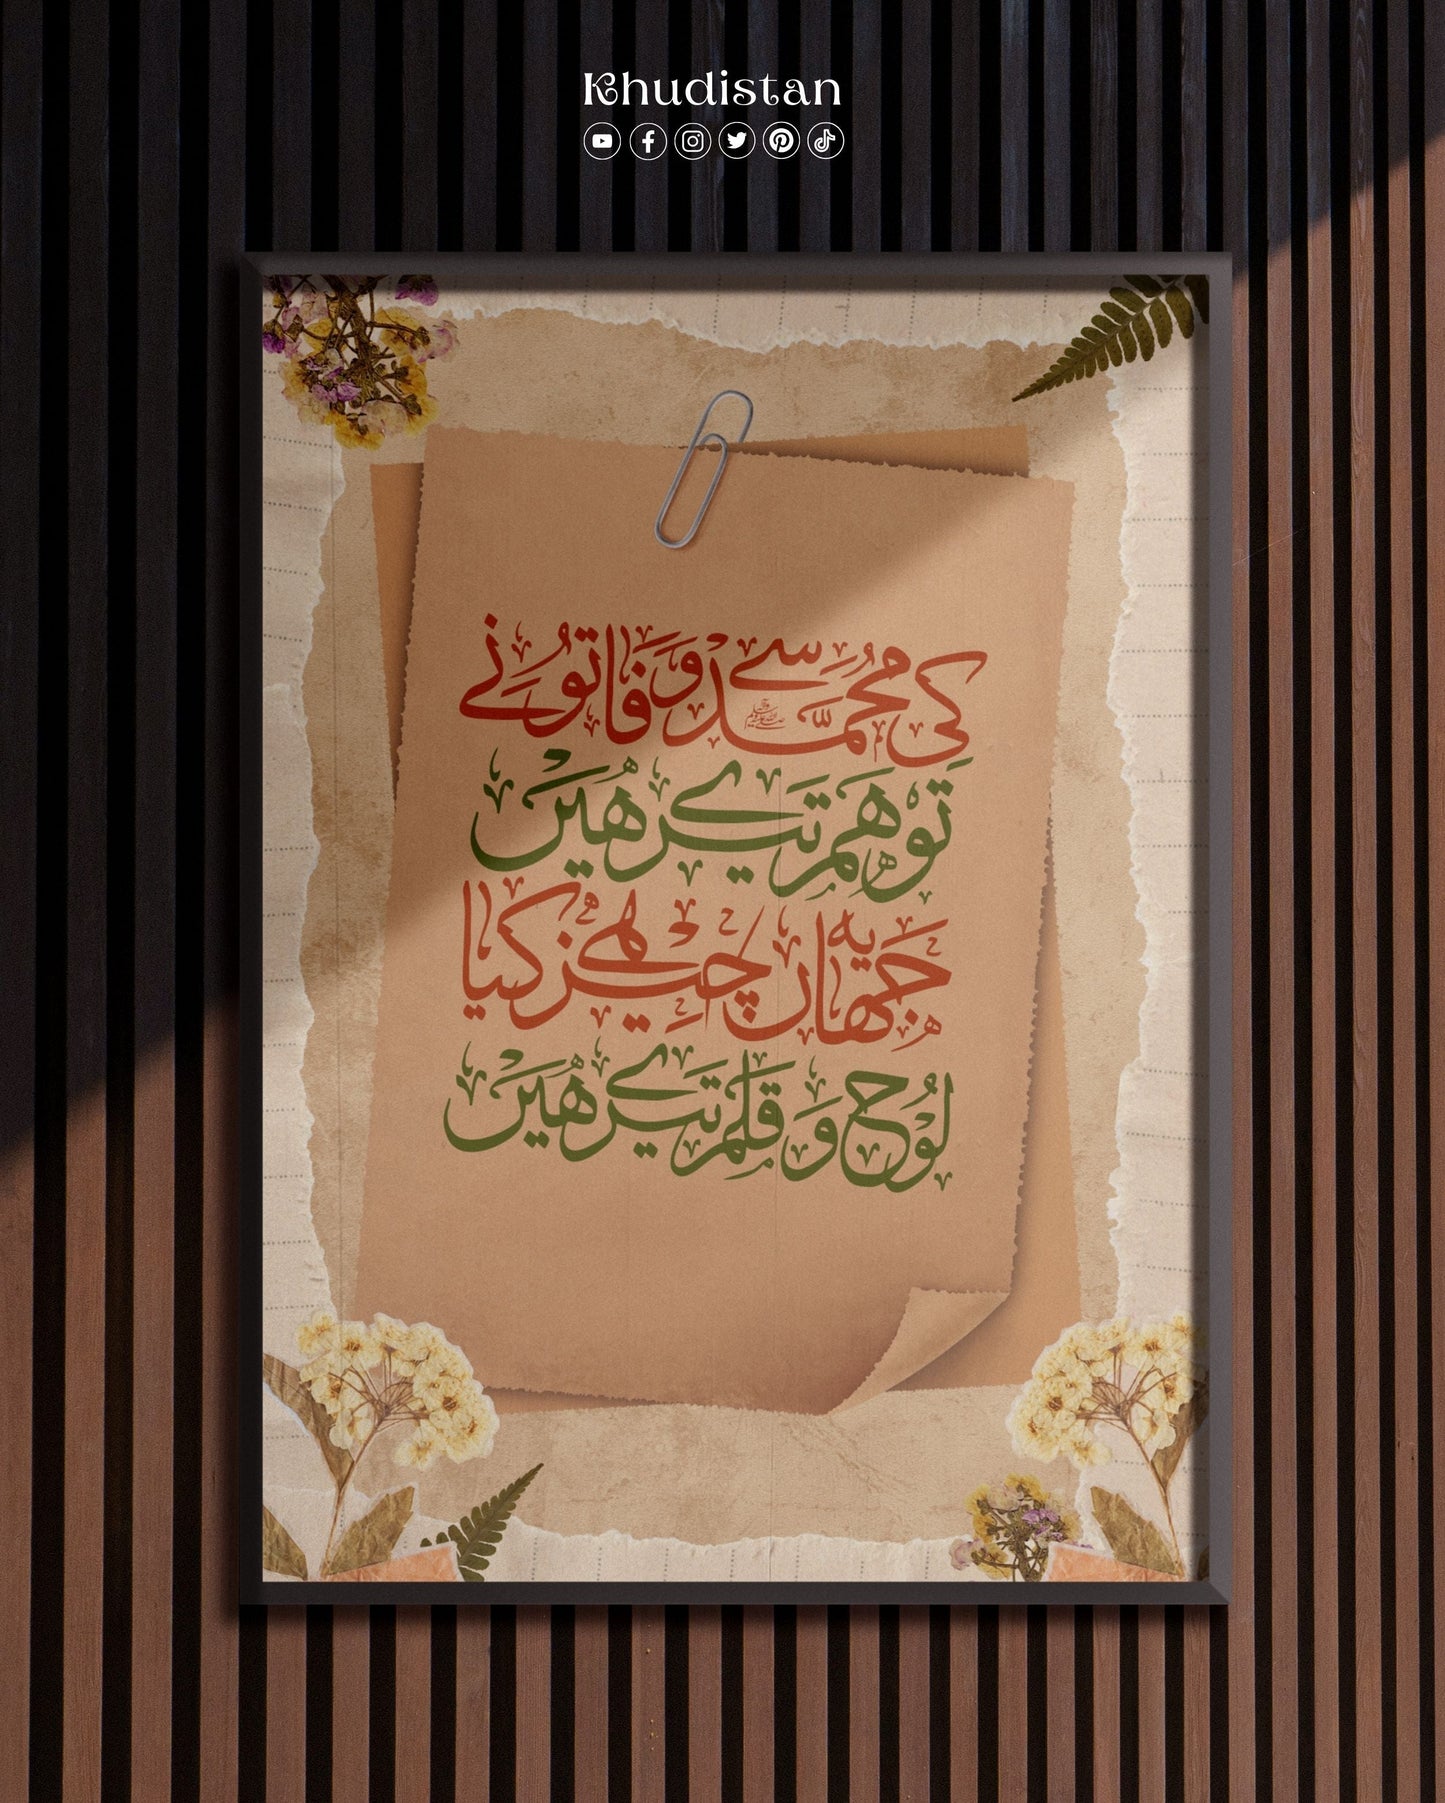 Khudistan
کی محمد ﷺ سے وفا تو نے
تو ہم تیرے ہیں
یہ جہاں چیز ہے کیا
لوح و قلم تیرے ہیں